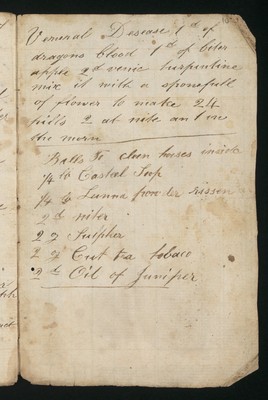 Veneral Desease 1 d of
dragons blood 1 d of biter
apple 2 d venic turpentine
mix it with a sponefull
of flower to make 24
pills 2 at nite an 1 in
the morn
Balls To clen horses inside
1/4 lb Castal Sop
1/4 lb Senna powder
2 d niter
2 Sulpher
2 Cut tobaco
2 d Oil of Juniper